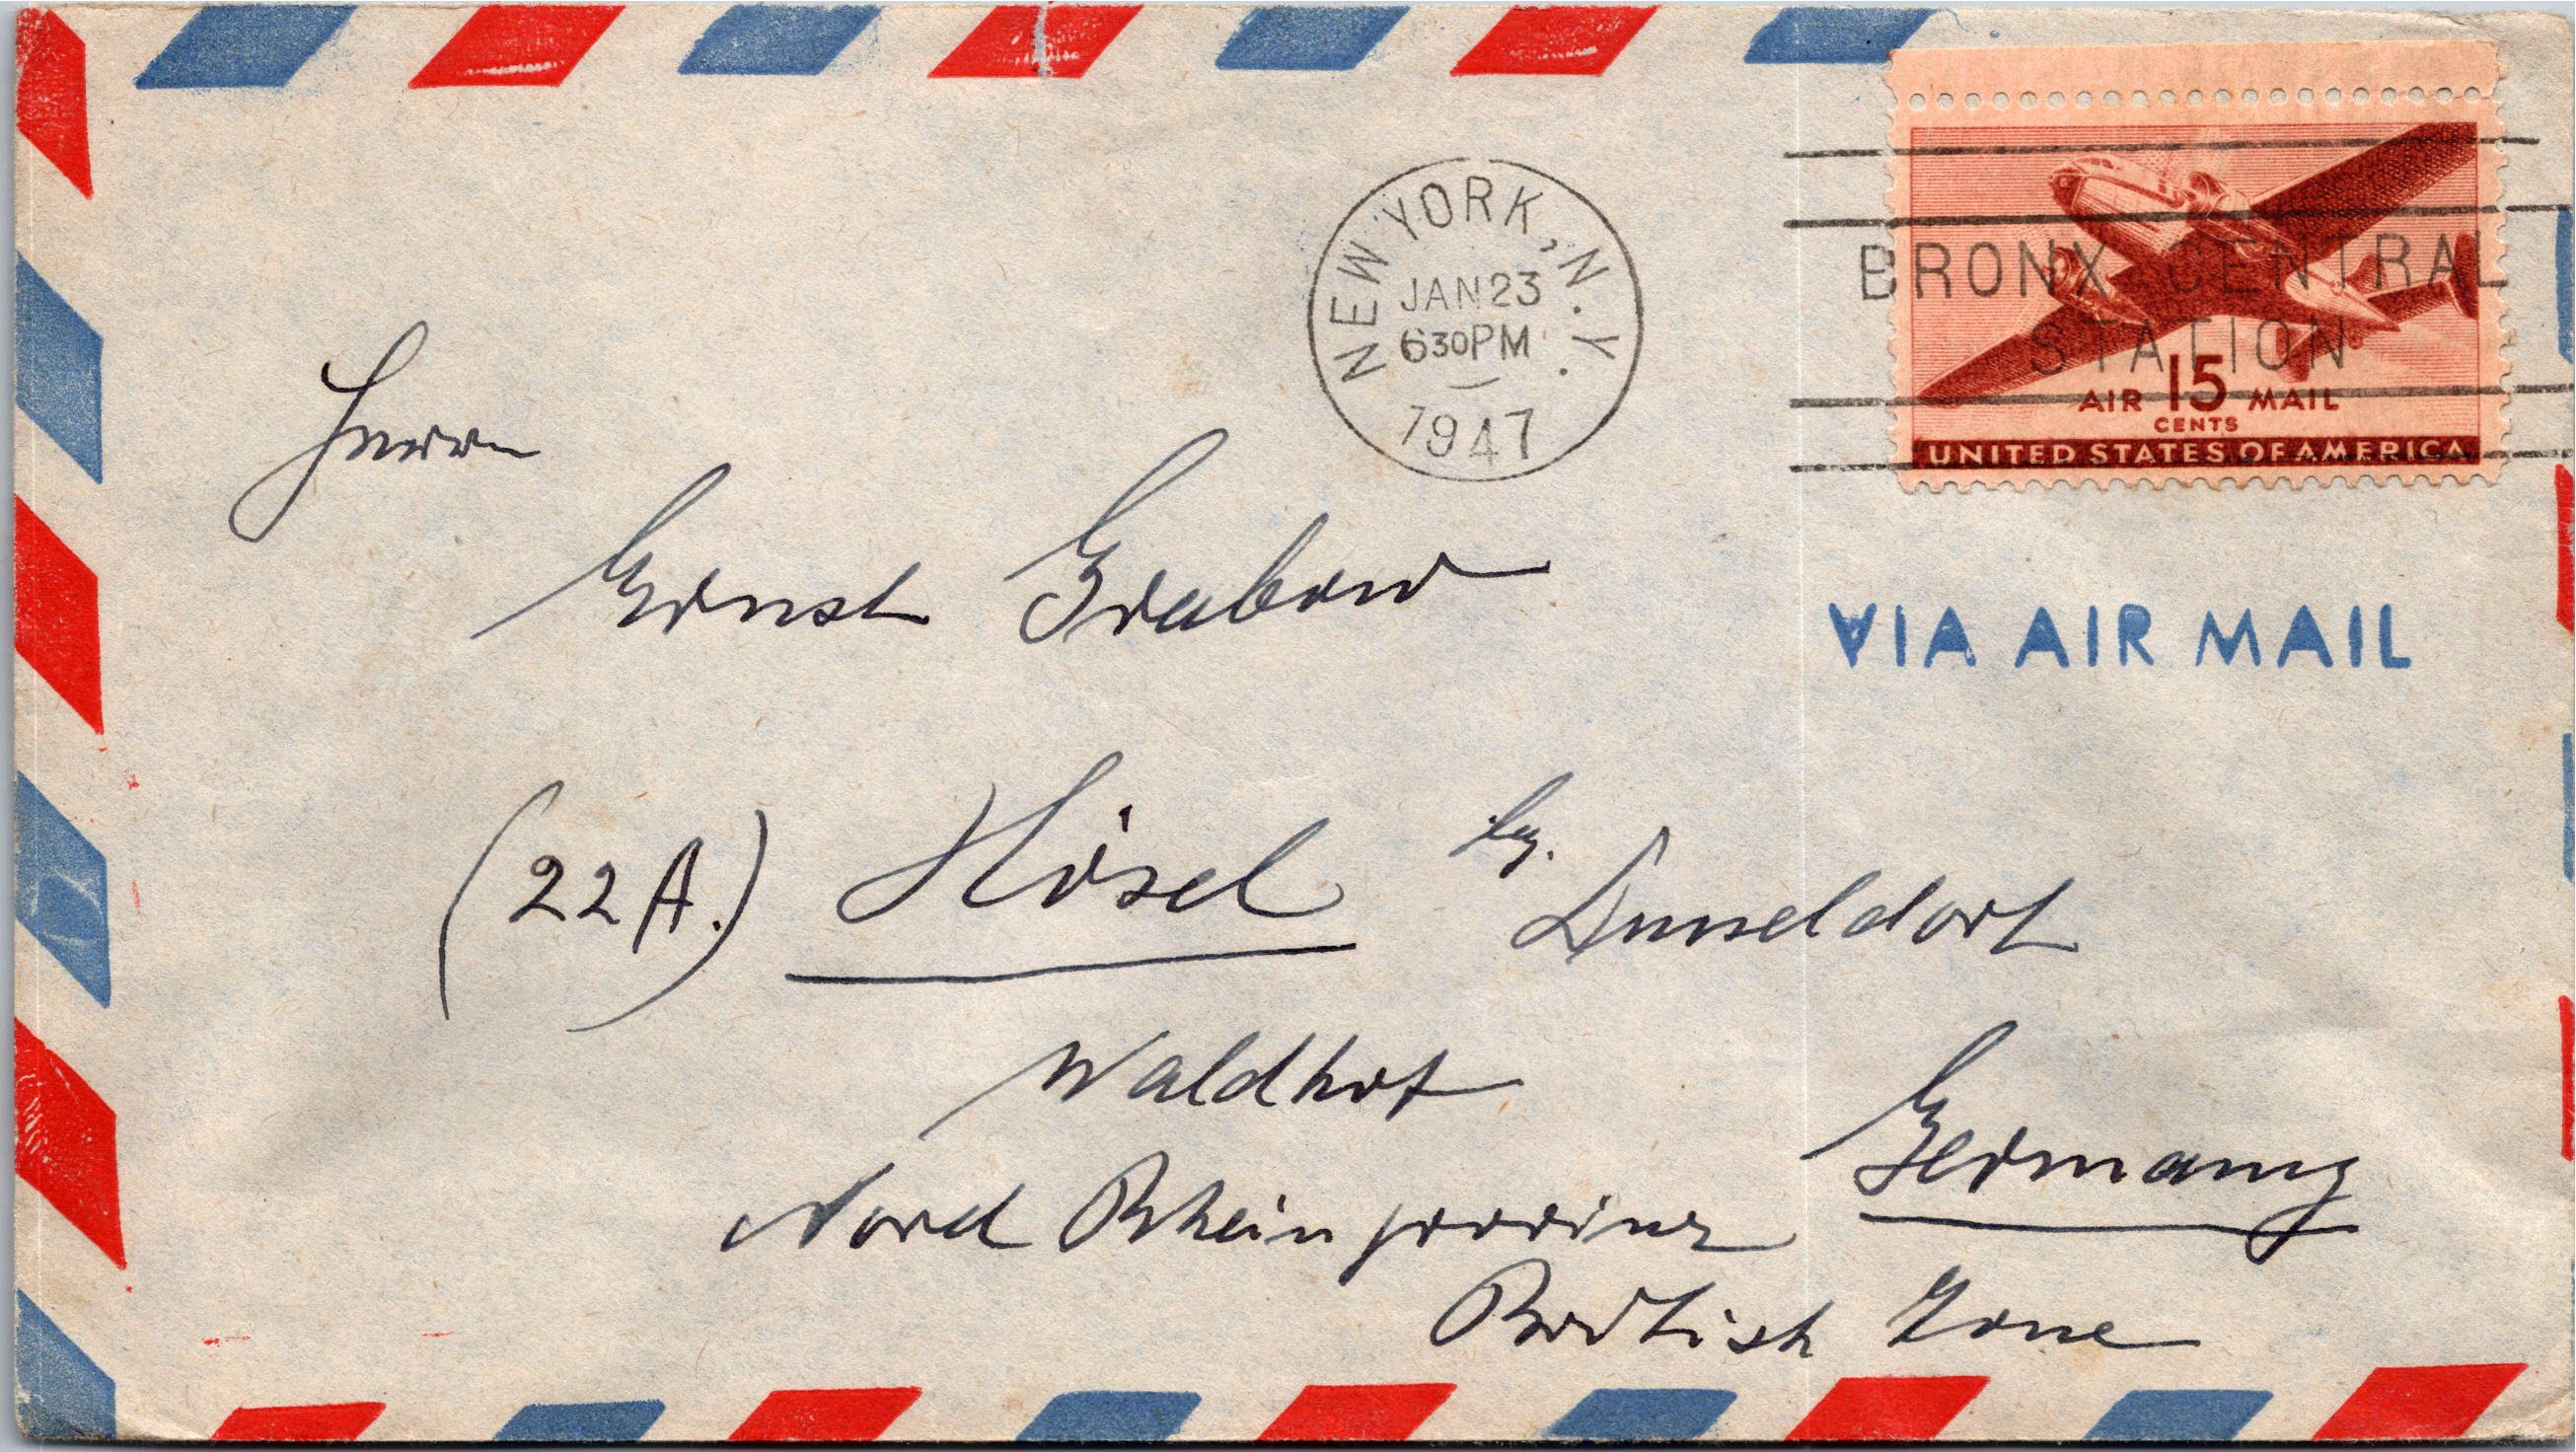 NEW YORK, N.Y.
JAN 23
6 30 PM
1947
BRONX CENTRAL
STATION
AIR 15 MAIL
CENTS
UNITED STATES OF AMERICA
VIA AIR MAIL
Herrn
Ernst Grabow
(22A.) Hösel Düsseldorf
Waldhof
Nord Rheinprovinz Germany
British Zone